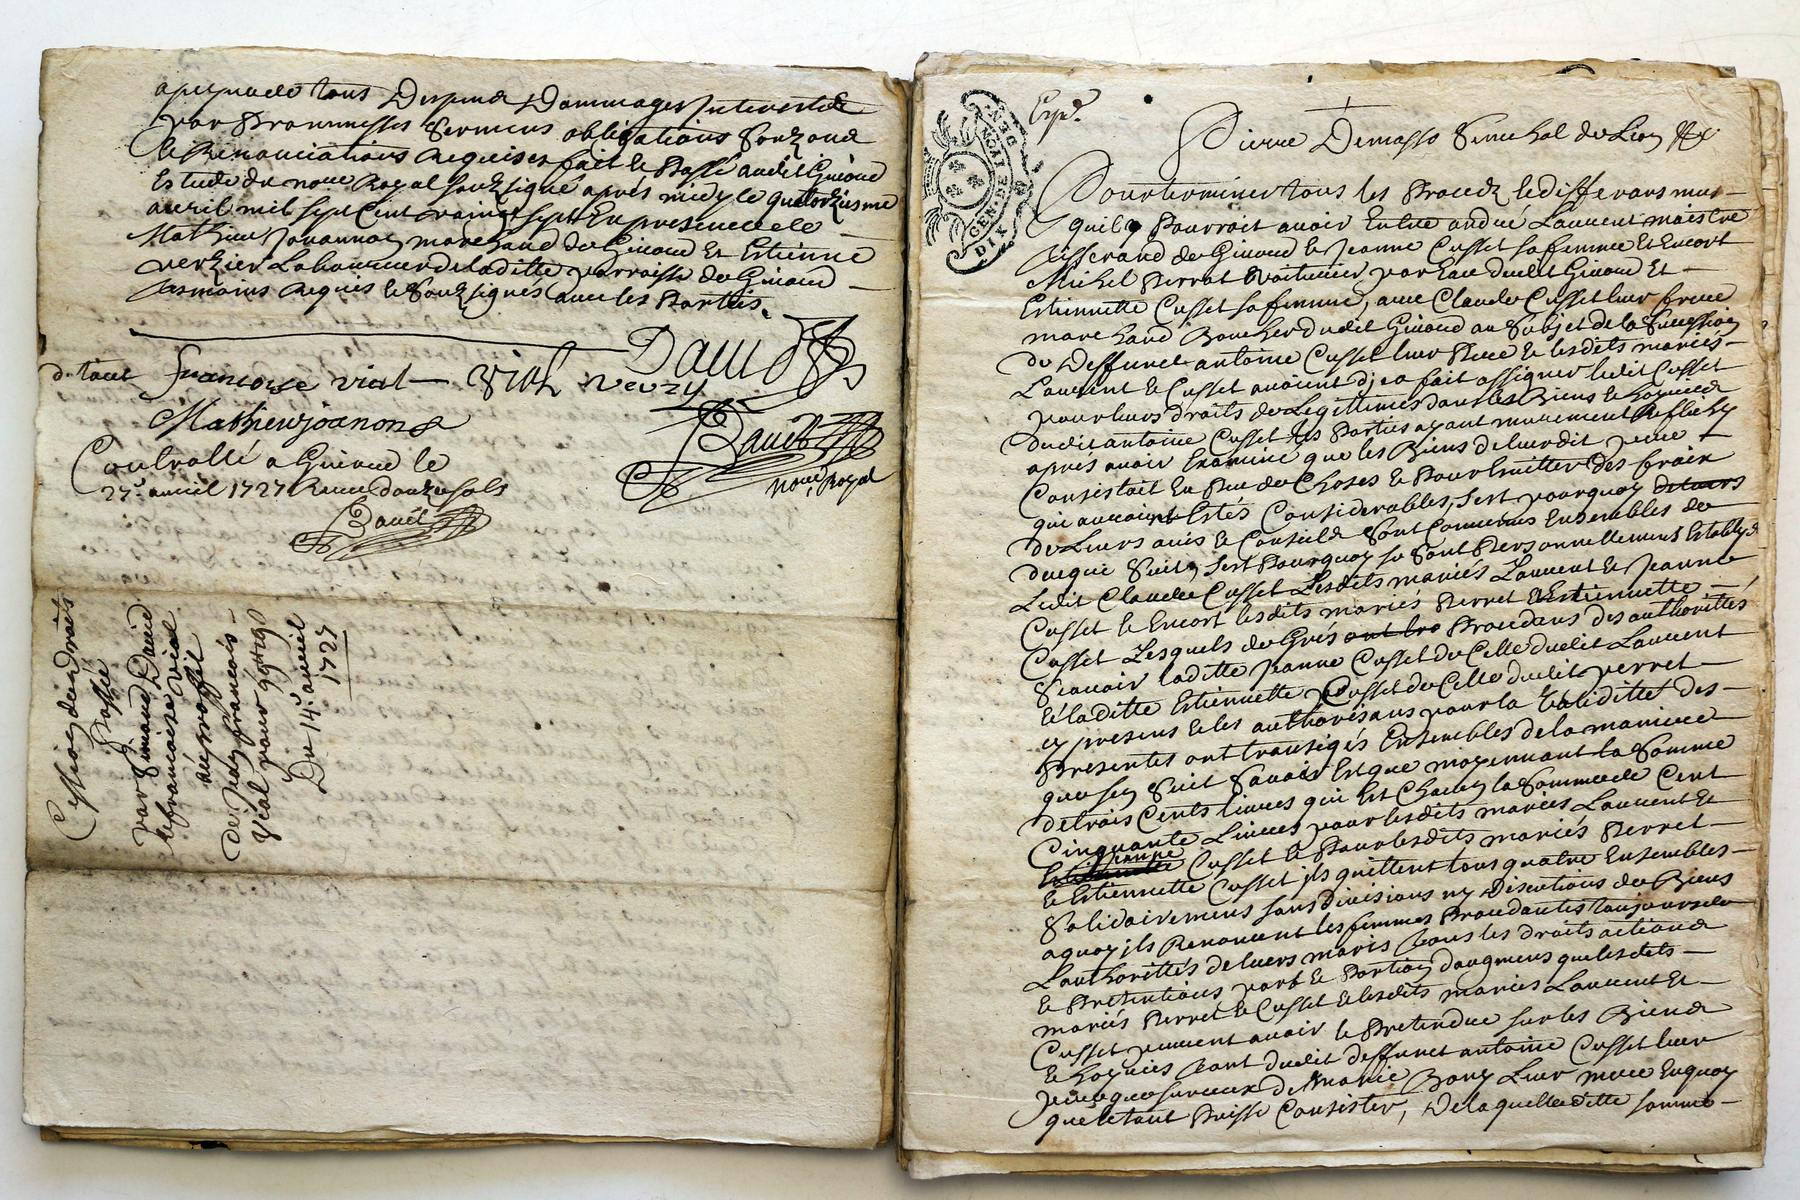 a peyne de tous Despens Dommages Interests &
par Prommesses Sermens obligations Soubz
& Renonciations Requises fait & Passé audit Givord
Estude du nore Royal soubzsigné apres midy le quatorzieme
avril mil sept Cent vaingt sept En presence de
Mathieu Jouannon marchand de Givord Et Estienne
verzier Laboureur de laditte parroisse de Givord
tesmoins Requis & Soubzsignés avec les Parties.
David
francoise vial vial
Mathieu joanon
David
nore Royal
Controllé a Givord le
27e avril 1727 Receu douze sols
David
Cession de droits
Passée
par Simand David
& francoise vial
au proffit
de Jean francois
Vial pour
Du 14e avril
1727
DIX DEN.
GEN. DE
Exp.
Pierre Demasso Senechal de Lion &
Pour terminer tous les Procedz & differans mus
quil y Pourroit avoir Entre andre Laurent maistre
tisserand de Givord & Jeanne Cusset sa femme Et Encort
Michel Perret Voiturier par Eau dudit Givord Et
Estiennette Cusset sa femme, avec Claude Cusset leur frere
marchand Boucher dudit Givord au Subjet de la Succession
de Deffunct antoine Cusset leur Pere & lesdits mariés
Laurent & Cusset avoient dja fait assigner ledit Cusset
pour leurs droits de Legittimes dans les Biens & hoyries
dudit antoine Cusset les Parties ayant murement Refflechy
aprés avoir Examiné que les Biens de leurdit pere
Consistait En Peu de Choses & Pour Eviter des fraix
qui auroient Estés Considerables, sest pourquoy
de Leurs avis & Conseils Sont Convenus Ensembles de
ce qui Suit, sest Pourquoy se Sont Personnellement Establys
Ledit Claude Cusset Lesdits mariés Laurent & Jeanne
Cusset & Encort lesdits mariés Perret & Estiennette
Cusset Lesquels de Grés Procedans des authorittés
Scavoir laditte Jeanne Cusset de Celle dudit Laurent
& laditte Estiennette Cusset de Celle dudit perret
cy presens & les authorisans pour la Validitté des
Presentes ont transigés Ensembles de la maniere
que sen Suit Savoir Est que moyennant la Somme
de trois Cents livres qui Est Chacun la Somme de Cent
Cinquante Livres pour lesdits mariés Laurent Et
Jeanne Cusset & Pour lesdits mariés Perret
& Estiennette Cusset ils quittent tous quatre Ensembles
Solidairement sans divisions ny Discutions de Biens
a quoy ils Renoncent les femmes Procedantes toujours de
Lauthorittés de leurs maris tous les droits actions
& Pretentions part & Portion daugmens que lesdits
mariés Perret & Cusset & lesdits mariés Laurent Et
Cusset peuvent avoir & Pretendre sur les Biens
& hoyries tant dudit deffunct antoine Cusset leur
pere que sur ceux de Marie Leur mere En quoy
que le tout Puisse Consister, De laquelle ditte somme